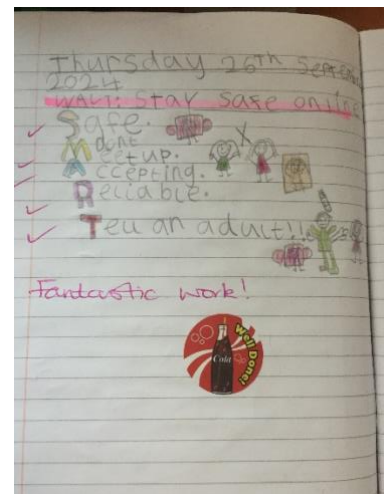 Thursday 26th Septem
2024
WALT: Stay safe online
Safe.
dont
Meet up.
Accepting.
Reliable.
Tell an adult!!
Fantastic work!
Well Done!
Cola